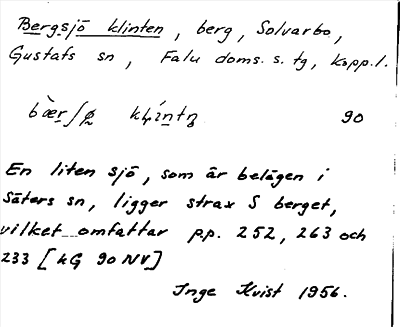 Bergsjö klinten, berg, Solvarbo,
Gustafs sn, Falu doms. s. tg, Kopp. l.
90
En liten sjö, som är belägen i
Säters sn, ligger strax S berget,
vilket omfattar pp. 252, 263 och
233 [kG 90 NV]
Inge Kvist 1956.